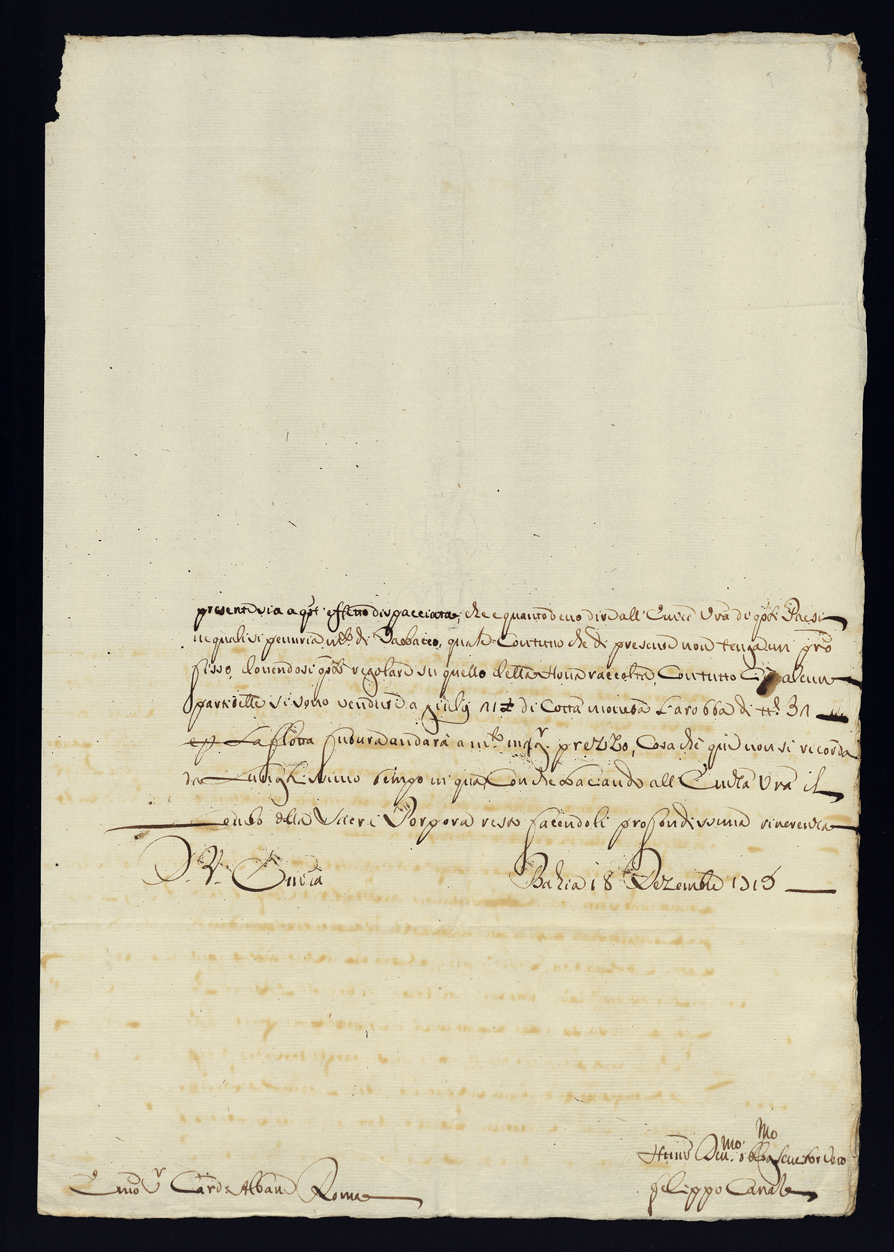 presente via a q.st effetto dispacciata, che è quanto devo dire all' Em.za Vra di q.sti Paesi
ne quali vi penuria di Tabacco, quale contutto che di presente non tenga un pre
fisso, dovendosi q.sto regolare su quello della nova raccolta, Contutto alcune
partitelle si sono vendute a giulij di Cotta moneta l'arobba di tt. 31
La flotta andarà a prezzo, Cosa che quì non si ricorda
da Lunghissimo tempo in quà, Con che baciando all' Em.za Vra il
Lembo della Sacra Porpora resto facendoli profondissima riverenza
D. V. Em.za Bahia 18 Dezembre 1715
Humo Devmo obbgmo Servitor Vero
Emo Sr Card. Albani Roma
Filippo Canale